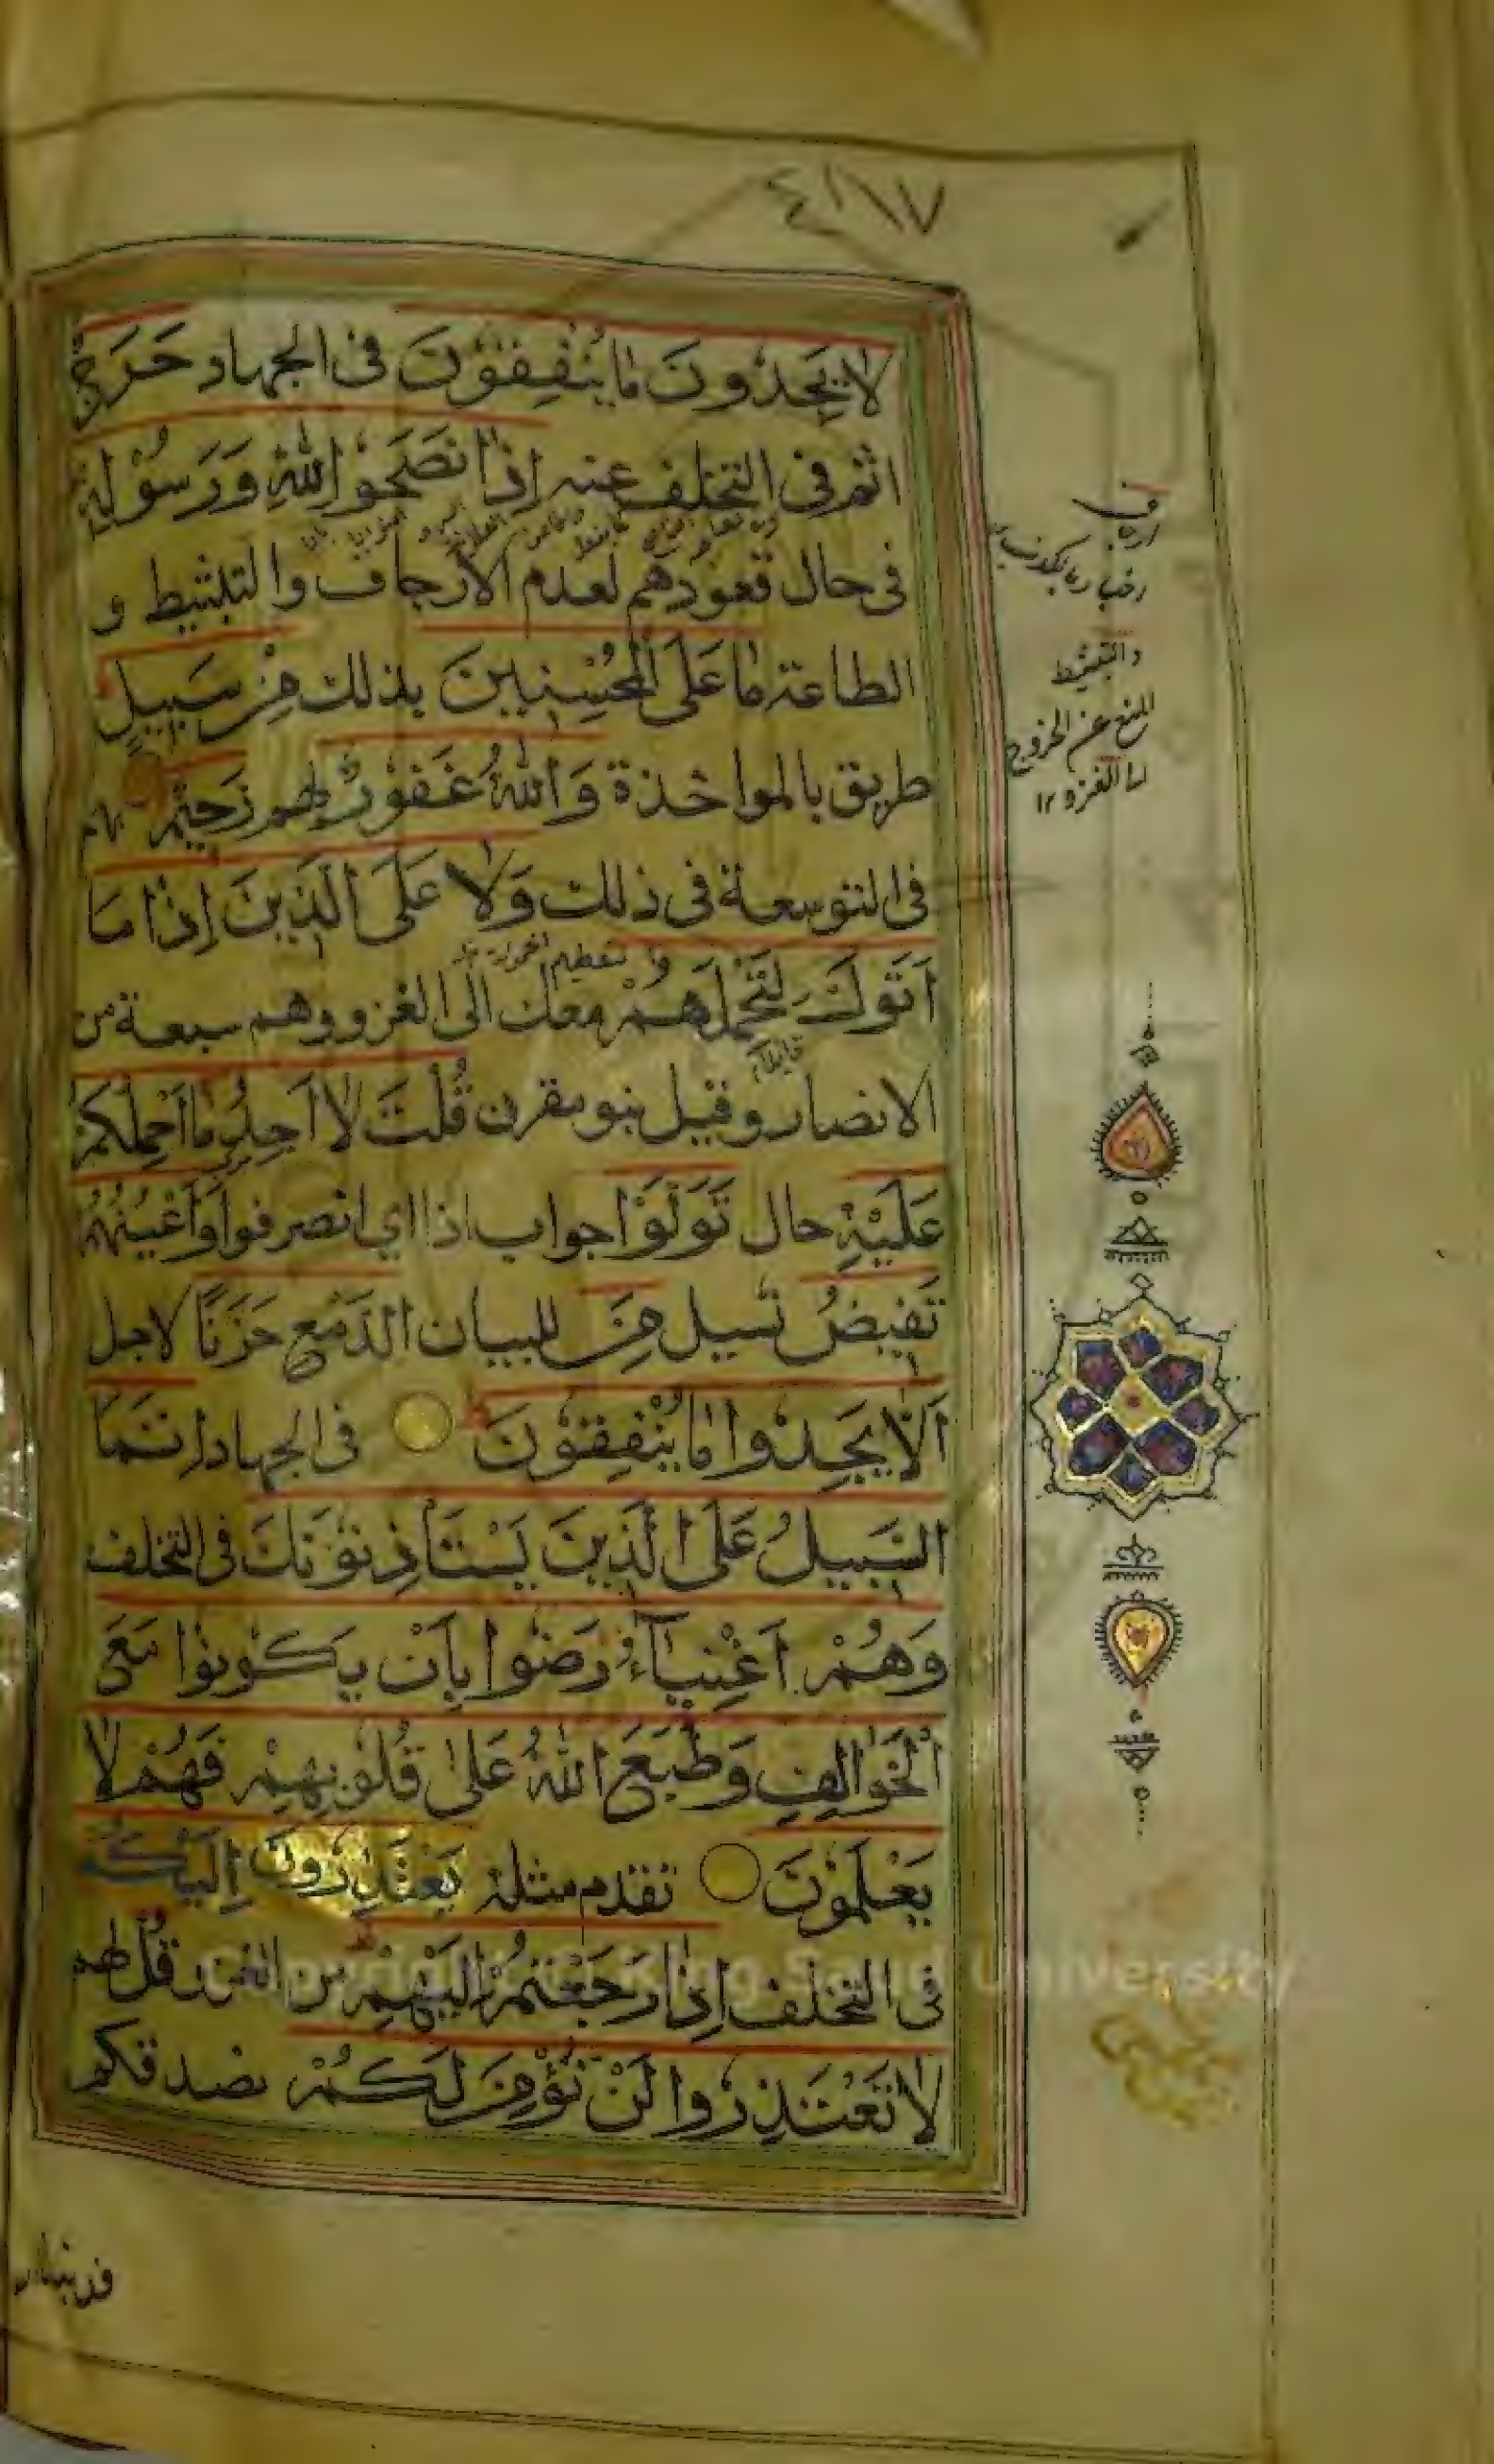 ٤١٧
لَا يَجِدُونَ مَا يُنْفِقُونَ فى الجهاد حَرَجٌ
اثم فى التخلف عنه اِذَا نَصَحُوْا لِلّٰهِ وَرَسُوْلِهٖ
فى حال قعودهم لعدم الارجاف والتثبيط و
الطاعة مَا عَلَى الْمُحْسِنِيْنَ بذلك مِنْ سَبِيْلٍ
طريق بالمواخذة وَاللّٰهُ غَفُوْرٌ لهم رَحِيْمٌ بهم
فى التوسعة فى ذلك وَلَا عَلَى الَّذِيْنَ اِذَا مَا
اَتَوْكَ لِتَحْمِلَهُمْ معك الى الغزو وهم سبعة من
الانصار وقيل بنو مقرن قُلْتَ لَا اَجِدُ مَا اَحْمِلُكُمْ
عَلَيْهِ حال تَوَلَّوْا جواب اذا اي انصرفوا وَاَعْيُنُهُمْ
تَفِيْضُ تسيل مِنَ للبيان الدَّمْعِ حَزَنًا لاجل
اَلَّا يَجِدُوْا مَا يُنْفِقُوْنَ فى الجهاد اِنَّمَا
السَّبِيْلُ عَلَى الَّذِيْنَ يَسْتَاْذِنُوْنَكَ فى التخلف
وَهُمْ اَغْنِيَآءُ رَضُوْا بِاَنْ يَكُوْنُوْا مَعَ
الْخَوَالِفِ وَطَبَعَ اللّٰهُ عَلٰى قُلُوْبِهِمْ فَهُمْ لَا
يَعْلَمُوْنَ تقدم مثله يَعْتَذِرُوْنَ اِلَيْكُمْ
فى التخلف اِذَا رَجَعْتُمْ اِلَيْهِمْ من الغزو قُلْ لهم
لَا تَعْتَذِرُوْا لَنْ نُؤْمِنَ لَكُمْ نصدقكم
والتثبيط
المنع عن الخروج
الى الغزو ١٢
قد نبانا
University